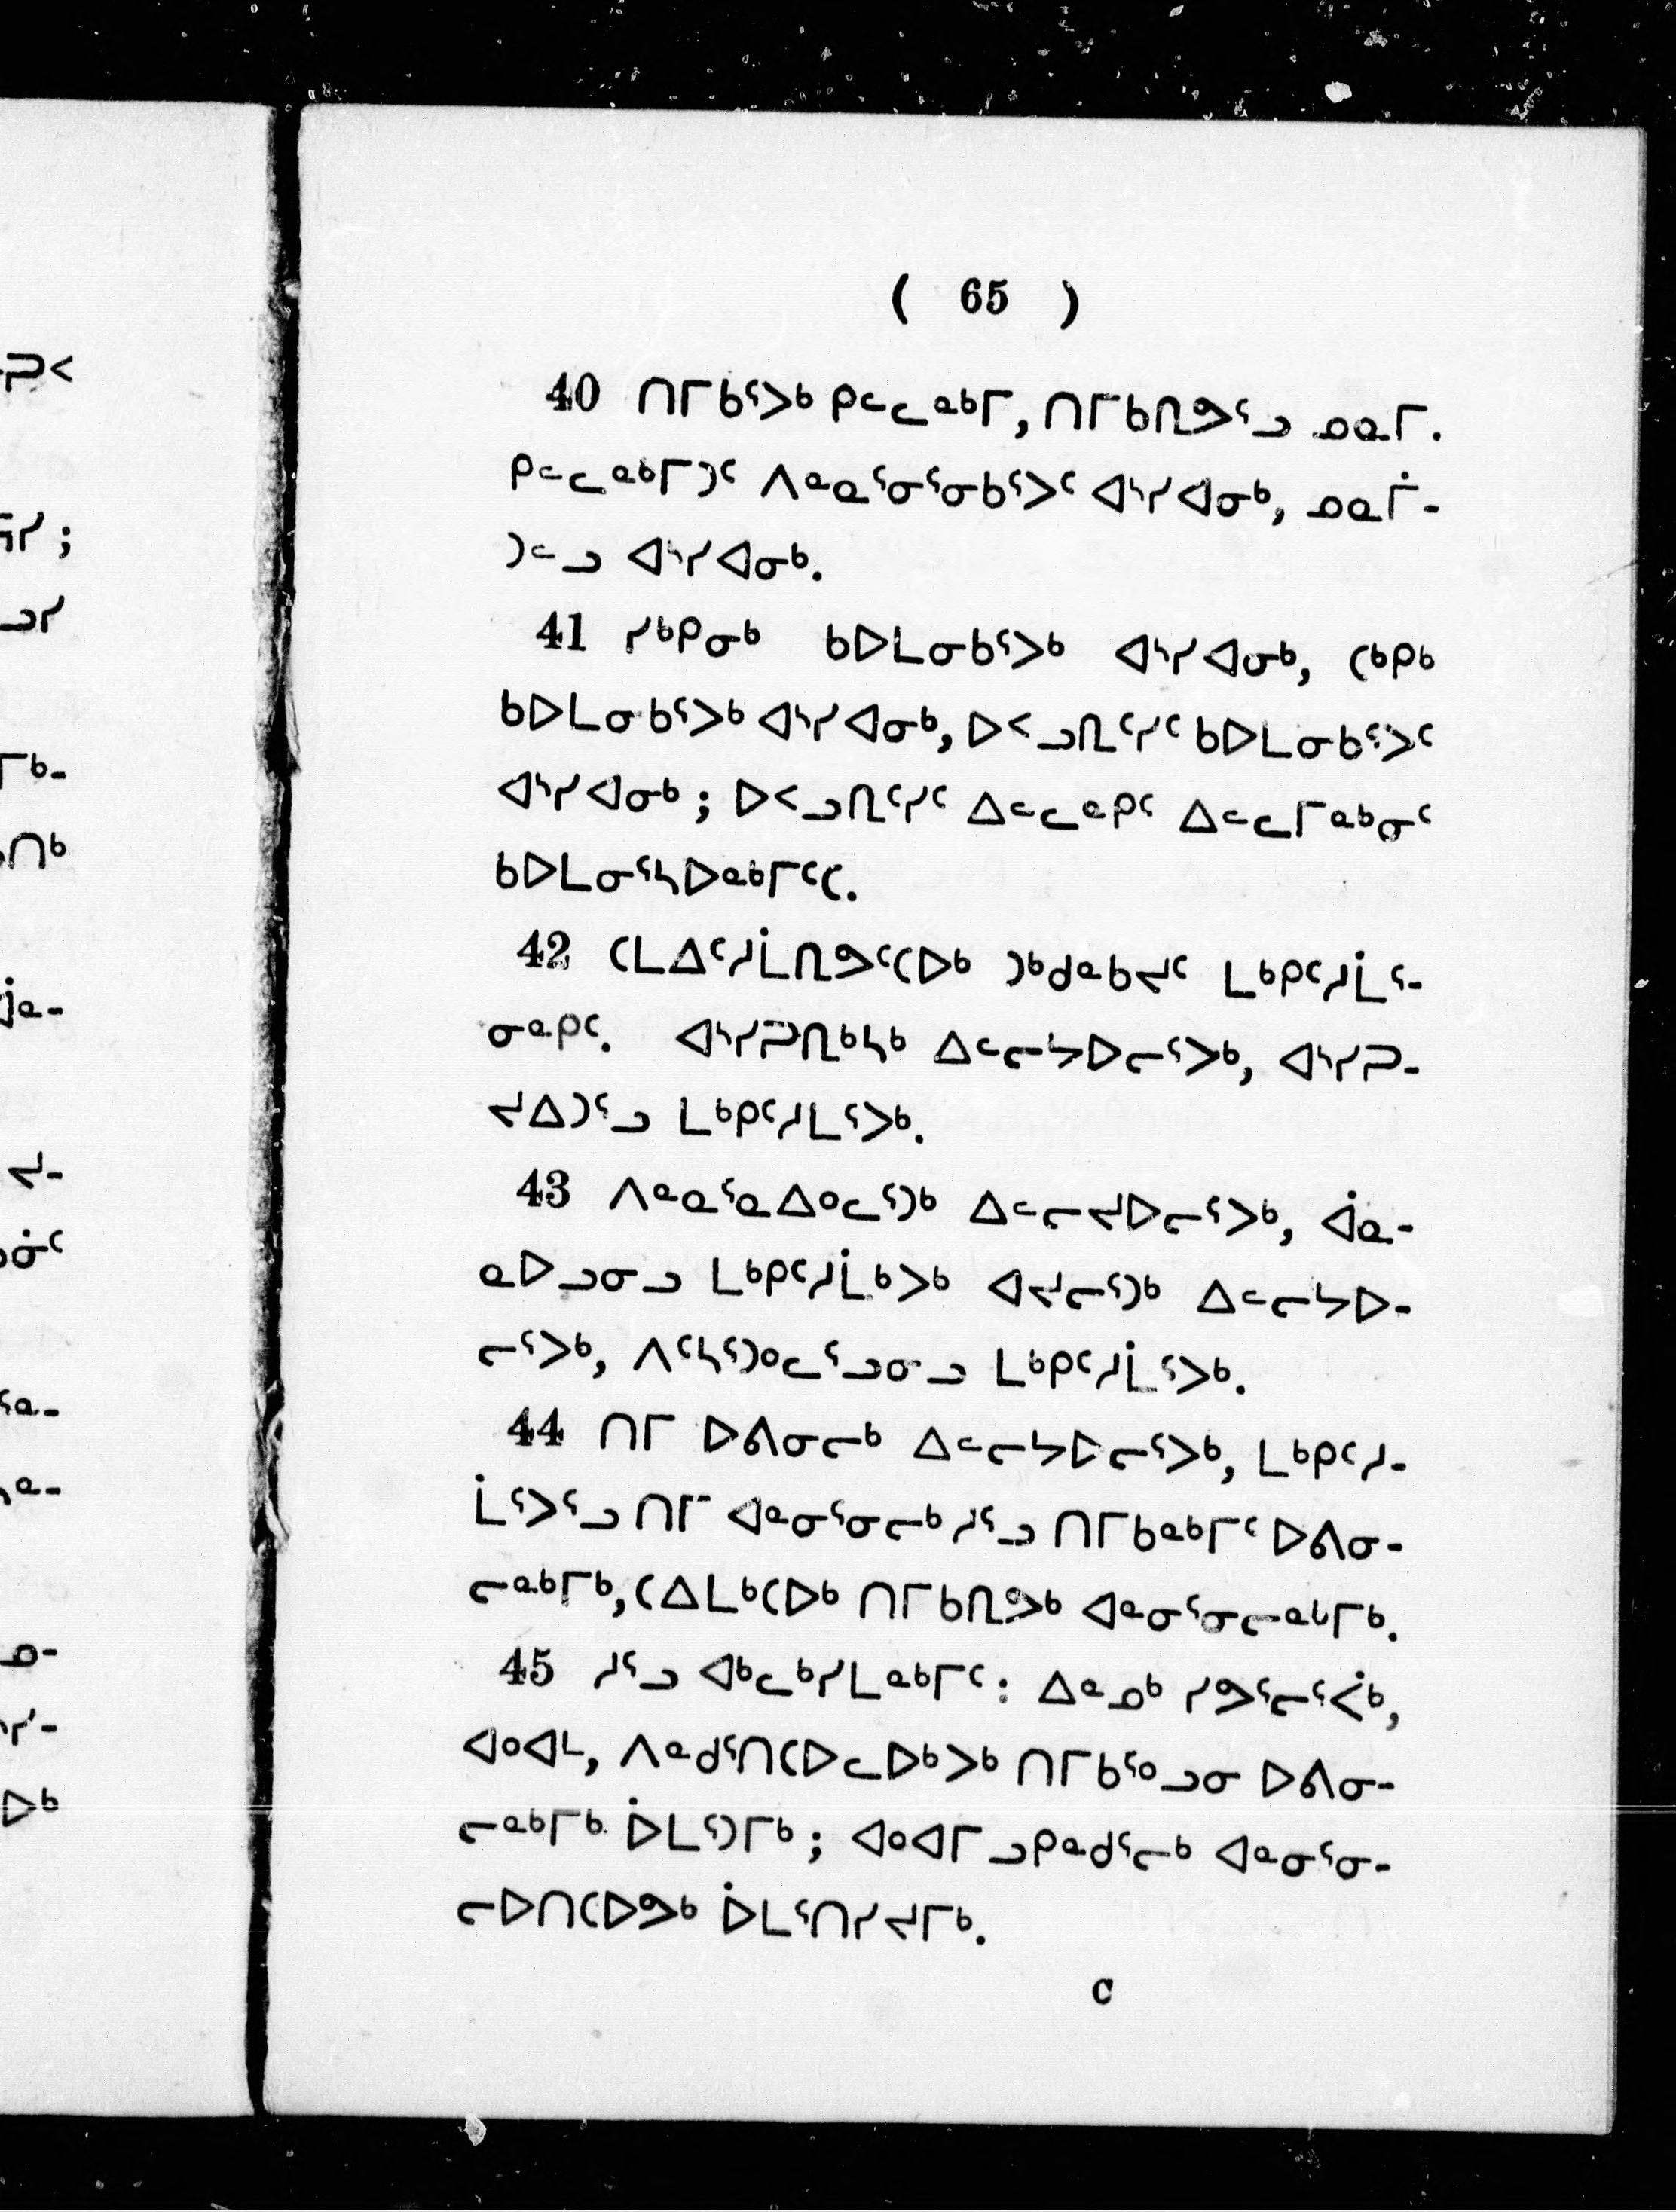 ( 65 )
40 ᑎᒥᑲᕐᐳᒃ ᑭᓪᓚᓐᒃᒥ, ᑎᒥᑲᖏᕗᕐᓗ ᓄᓇᒥ.
ᑭᓪᓚᓐᒃᒥᑐᑦ ᐱᓐᓇᕐᓂᕐᓂᑲᕐᐳᑦ ᐊᔅᓯᐊᓂᒃ, ᓄᓇᒦ-
ᑐᓪᓗ ᐊᔅᓯᐊᓂᒃ.
41 ᓯᒃᑭᓂᒃ ᑲᐅᒪᓂᑲᕐᐳᒃ ᐊᔅᓯᐊᓂᒃ, ᑕᒃᑭᒃ
ᑲᐅᒪᓂᑲᕐᐳᒃ ᐊᔅᓯᐊᓂᒃ, ᐅᑉᓗᖏᑦᓯᑦ ᑲᐅᒪᓂᑲᕐᐳᑦ
ᐊᔅᓯᐊᓂᒃ; ᐅᑉᓗᖏᑦᓯᑦ ᐃᓪᓚᓐᑭᑦ ᐃᓪᓚᒥᓐᒃᓂᑦ
ᑲᐅᒪᓂᕐᓴᐅᓐᒃᒥᑦᑕ.
42 ᑕᒪᐃᑦᓱᒫᖏᕗᑦᑕᐅᒃ ᑐᒃᑯᓐᑲᔪᑦ ᒪᒃᑭᑦᓱᒫᕐ-
ᓂᓐᑭᑦ. ᐊᔅᓯᕈᖏᒃᓴᒃ ᐃᓪᓕᔭᐅᓕᕐᐳᒃ, ᐊᔅᓯᕈ-
ᔪᐃᑐᕐᓗ ᒪᒃᑭᑦᓱᒪᕐᐳᒃ.
43 ᐱᓐᓇᕐᓇᐃᐤᓚᕐᑐᒃ ᐃᓪᓕᔪᐅᓕᕐᐳᒃ, ᐋᓇ-
ᓇᐅᓗᓂᓗ ᒪᒃᑭᑦᓱᒫᒃᐳᒃ ᐊᔪᓕᕐᑐᒃ ᐃᓪᓕᔭᐅ-
ᓕᕐᐳᒃ, ᐱᑦᓴᕐᑐᐤᓚᕐᓗᓂᓗ ᒪᒃᑭᑦᓱᒫᕐᐳᒃ.
44 ᑎᒥ ᐅᕕᓂᓕᒃ ᐃᓪᓕᔭᐅᓕᕐᐳᒃ, ᒪᒃᑭᑦᓱ-
ᒫᕐᐳᕐᓗ ᑎᒥ ᐊᓐᓂᕐᓂᓕᒃ ᓱᕐᓗ ᑎᒥᑲᓐᒃᒥᑦ ᐅᕕᓂ-
ᓕᓐᒃᒥᒃ, ᑕᐃᒪᒃᑕᐅᒃ ᑎᒥᑲᖏᕗᒃ ᐊᓐᓂᕐᓂᓕᓐᒃᒥᒃ.
45 ᓱᕐᓗ ᐊᒃᓚᒃᓯᒪᓐᒃᒥᑦ: ᐃᓐᓄᒃ ᓯᕗᕐᓕᕐᐹᒃ,
ᐊᐤᐊᒻ, ᐱᓐᑯᕐᑎᑕᐅᓚᐅᒃᐳᒃ ᑎᒥᑲᕐᐤᓗᓂ ᐅᕕᓂ-
ᓕᓐᒃᒥᒃ ᐆᒪᕐᑐᒥᒃ; ᐊᐤᐊᒥ ᓗᑭᓐᑯᕐᓕᒃ ᐊᓐᓂᕐᓂ-
ᓕᐅᑎᑕᐅᕗᒃ ᐆᒪᕐᑎᓯᔪᒥᒃ.
C